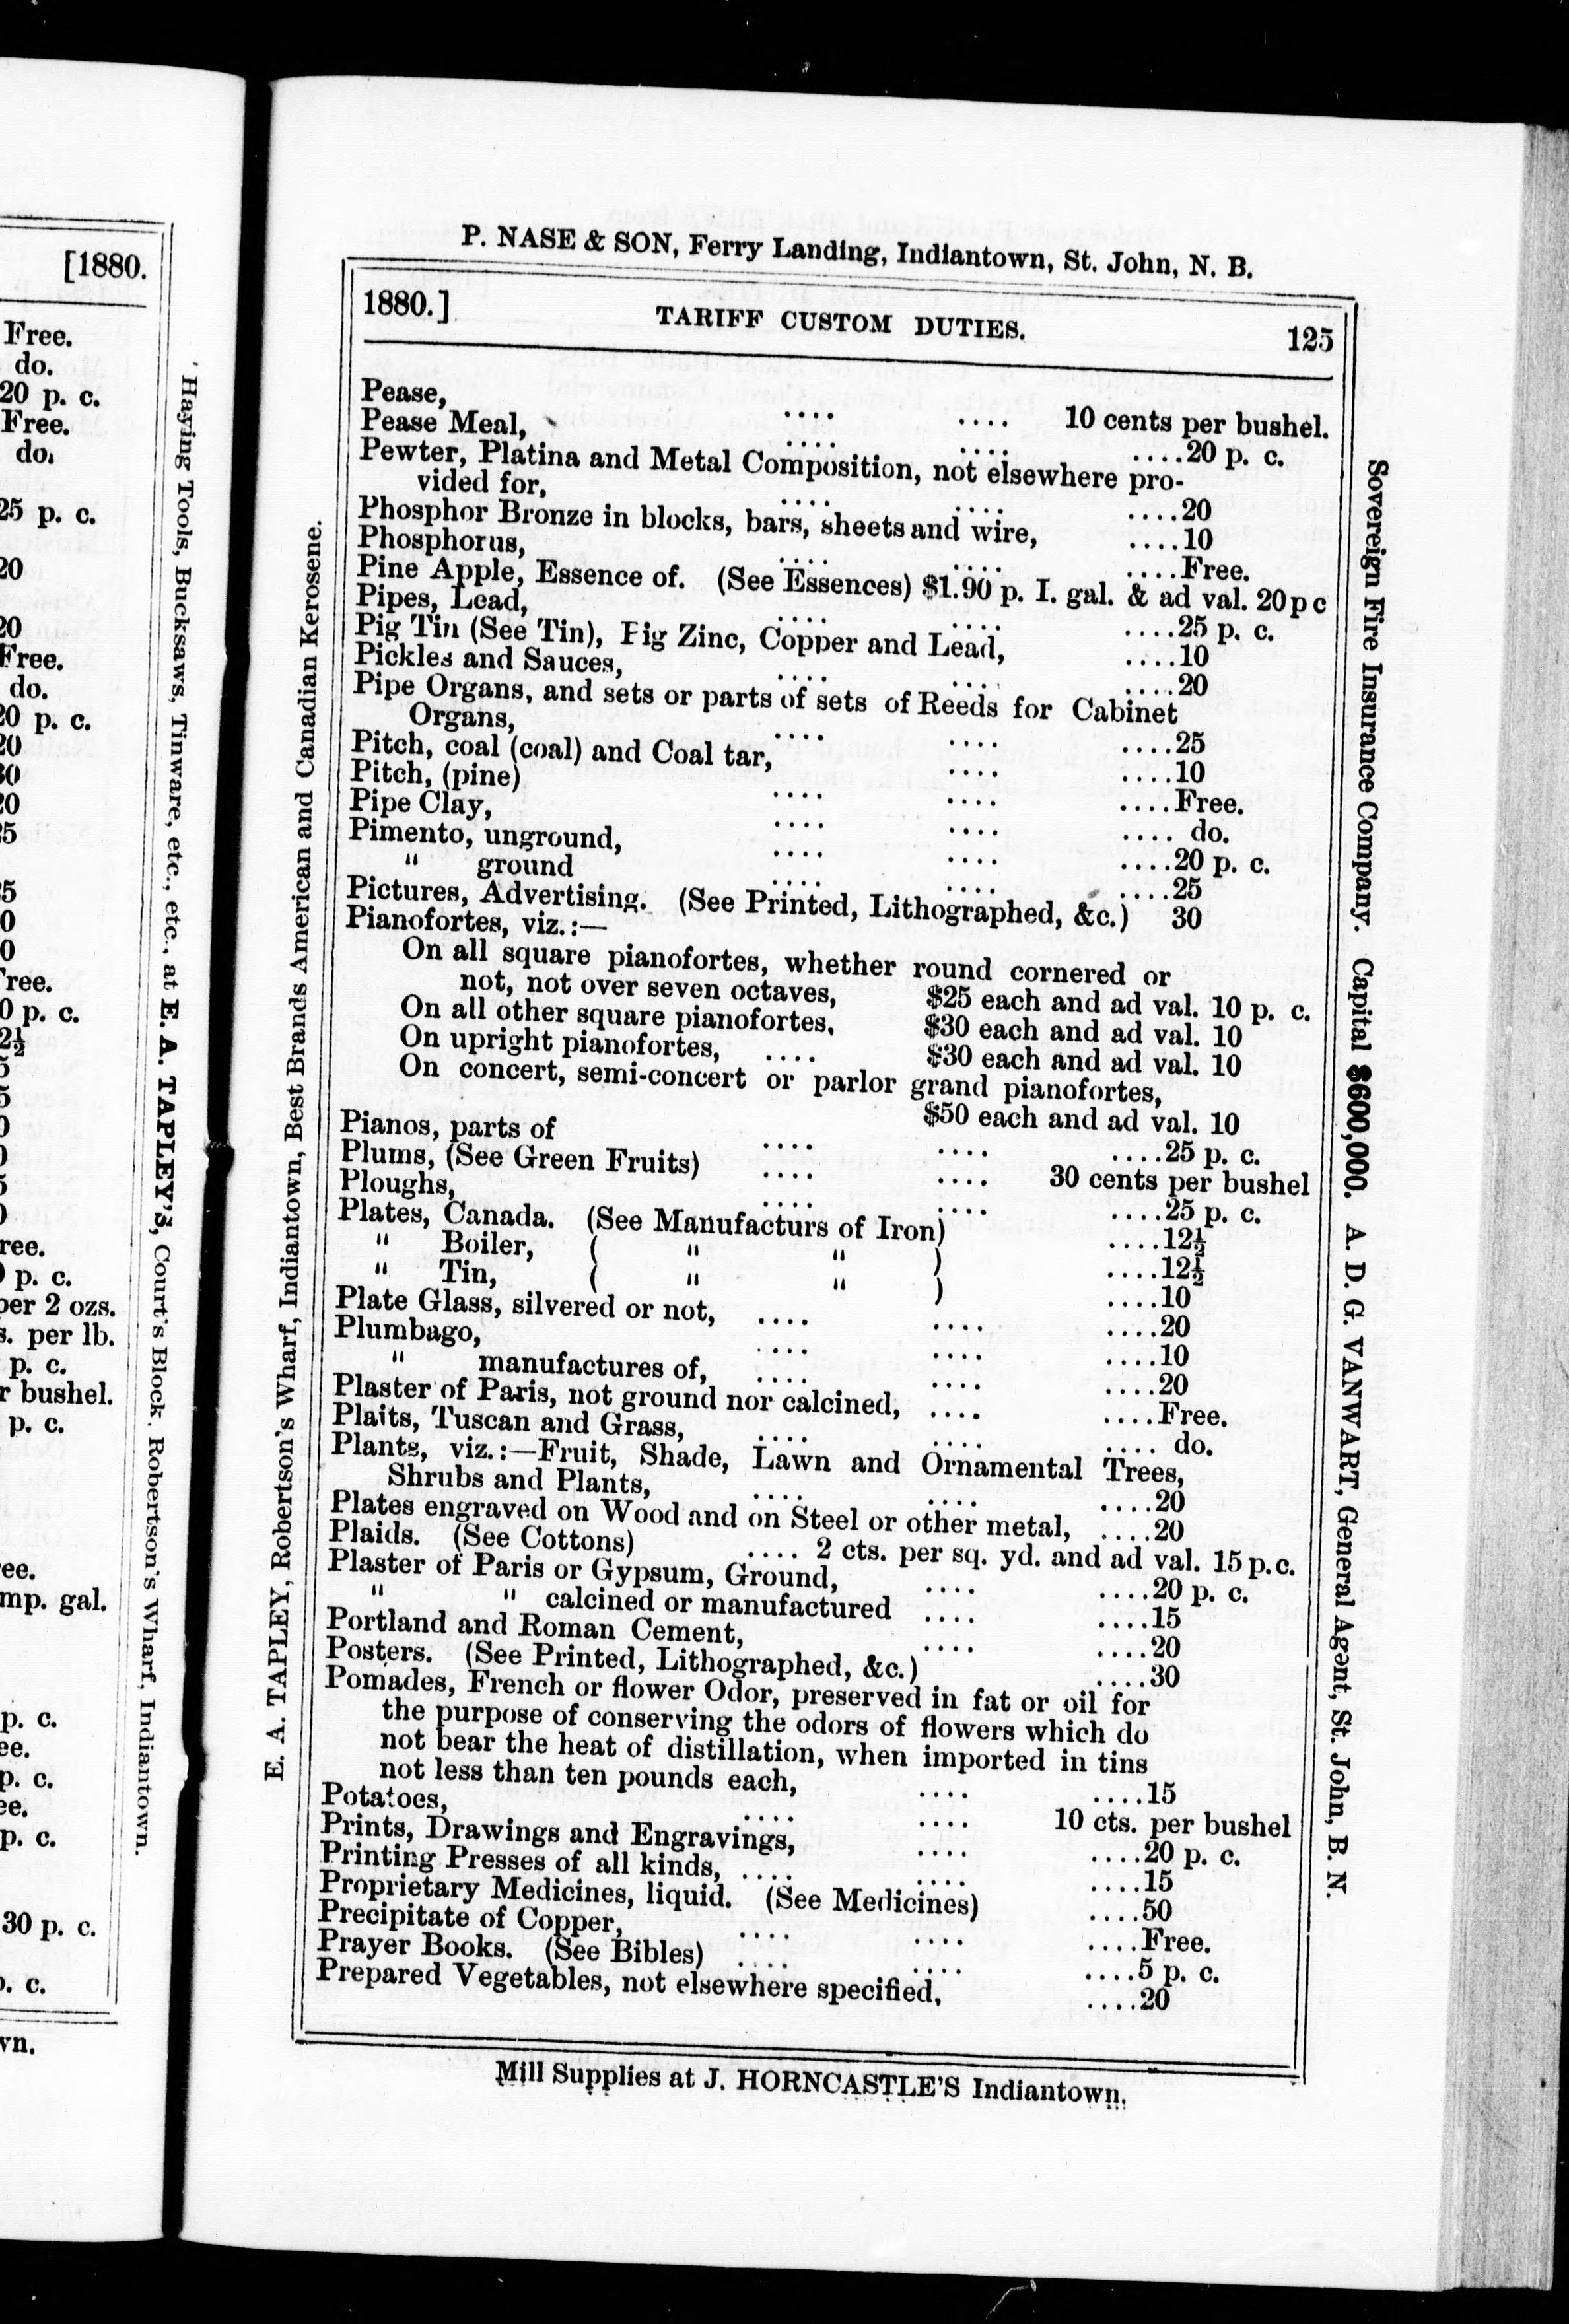 [1880.
Free.
do.
20 p. c.
Free.
do.
25 p. c.
20
20
Free.
do.
20 p. c.
20
30
20
25
p. c.
per 2 ozs.
per lb.
p. c.
bushel.
p. c.
gal.
p. c.
p. c.
p. c.
30 p. c.
p. c.
Haying Tools, Bucksaws, Tinware, etc., etc., at E. A. TAPLEY'S, Court's Block, Robertson's Wharf, Indiantown.
E. A. TAPLEY, Robertson's Wharf, Indiantown, Best Brands American and Canadian Kerosene.
P. NASE & SON, Ferry Landing, Indiantown, St. John, N. B.
1880.] TARIFF CUSTOM DUTIES. 125
Pease, .... .... 10 cents per bushel.
Pease Meal, .... .... ....20 p. c.
Pewter, Platina and Metal Composition, not elsewhere pro-
vided for, .... .... ....20
Phosphor Bronze in blocks, bars, sheets and wire, ....10
Phosphorus, .... .... ....Free.
Pine Apple, Essence of. (See Essences) $1.90 p. I. gal. & ad val. 20 p c
Pipes, Lead, .... .... ....25 p. c.
Pig Tin (See Tin), Pig Zinc, Copper and Lead, ....10
Pickles and Sauces, .... .... ....20
Pipe Organs, and sets or parts of sets of Reeds for Cabinet
Organs, .... .... ....25
Pitch, coal (coal) and Coal tar, .... ....10
Pitch, (pine) .... .... ....Free.
Pipe Clay, .... .... .... do.
Pimento, unground, .... .... ....20 p. c.
" ground .... .... ....25
Pictures, Advertising. (See Printed, Lithographed, &c.) 30
Pianofortes, viz.:—
On all square pianofortes, whether round cornered or
not, not over seven octaves, $25 each and ad val. 10 p. c.
On all other square pianofortes, $30 each and ad val. 10
On upright pianofortes, .... $30 each and ad val. 10
On concert, semi-concert or parlor grand pianofortes,
$50 each and ad val. 10
Pianos, parts of .... .... ....25 p. c.
Plums, (See Green Fruits) .... .... 30 cents per bushel
Ploughs, .... .... ....25 p. c.
Plates, Canada. (See Manufacturs of Iron) ....12½
" Boiler, ( " " ) ....12½
" Tin, ( " " ) ....10
Plate Glass, silvered or not, .... .... ....20
Plumbago, .... .... ....10
" manufactures of, .... .... ....20
Plaster of Paris, not ground nor calcined, .... ....Free.
Plaits, Tuscan and Grass, .... .... .... do.
Plants, viz.:—Fruit, Shade, Lawn and Ornamental Trees,
Shrubs and Plants, .... .... ....20
Plates engraved on Wood and on Steel or other metal, ....20
Plaids. (See Cottons) .... 2 cts. per sq. yd. and ad val. 15 p. c.
Plaster of Paris or Gypsum, Ground, .... ....20 p. c.
" " calcined or manufactured .... ....15
Portland and Roman Cement, .... ....20
Posters. (See Printed, Lithographed, &c.) ....30
Pomades, French or flower Odor, preserved in fat or oil for
the purpose of conserving the odors of flowers which do
not bear the heat of distillation, when imported in tins
not less than ten pounds each, .... ....15
Potatoes, .... .... 10 cts. per bushel
Prints, Drawings and Engravings, .... ....20 p. c.
Printing Presses of all kinds, .... .... ....15
Proprietary Medicines, liquid. (See Medicines) ....50
Precipitate of Copper, .... .... ....Free.
Prayer Books. (See Bibles) .... .... ....5 p. c.
Prepared Vegetables, not elsewhere specified, ....20
Mill Supplies at J. HORNCASTLE'S Indiantown.
Sovereign Fire Insurance Company. Capital $600,000. A. D. G. VANWART, General Agent, St. John, B. N.